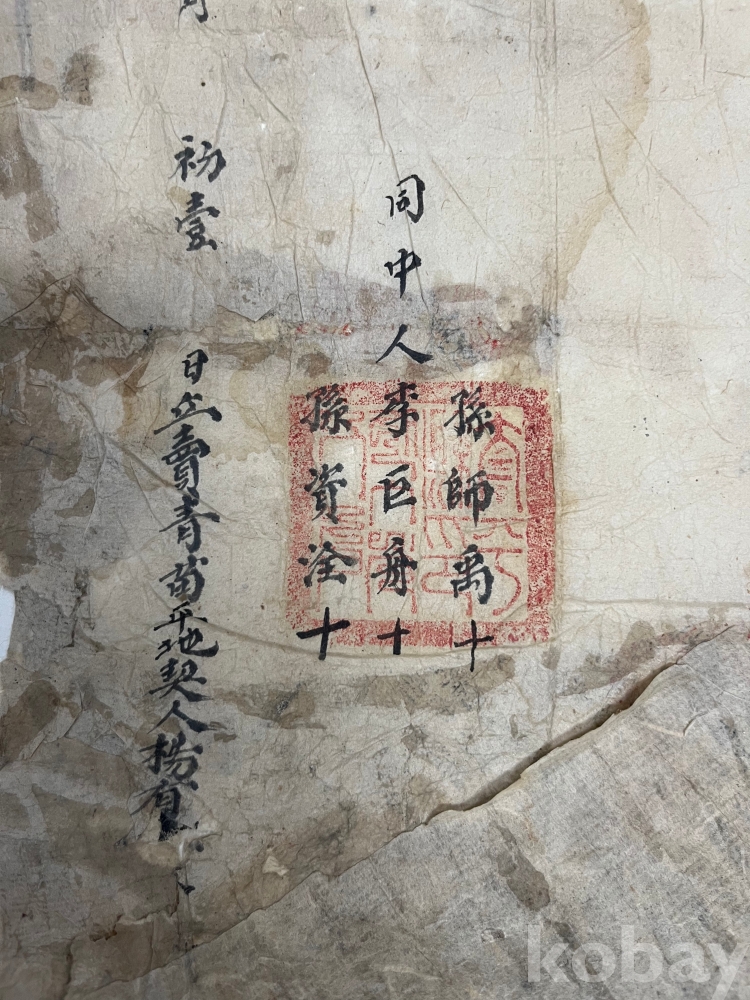 同中人
孫師禹十
李巨舟十
孫資淦十
月 初壹 日立賣青苗平地契人楊有
kobay